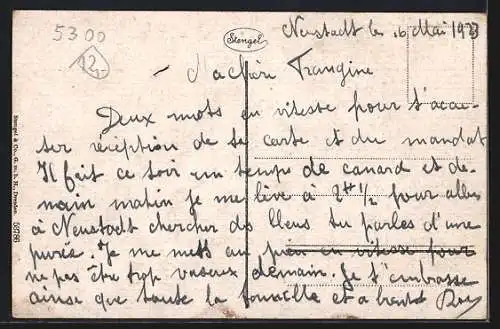 5300
12.-
Stengel
Neustadt le 16 Mai 1923
Ma chère Frangine
Deux mots en vitesse pour t'accu-
ser réception de ta carte et du mandat
Il fait ce soir un temps de canard et de-
main matin je me lève à 2H 1/2 pour aller
à Neustadt chercher des bleus tu parles d'une
purée. Je me mets au pieu en vitesse pour
ne pas être trop vaseux demain. Je t'embrasse
ainsi que toute la famille et à bientôt
Stengel & Co., G. m. b. H., Dresden